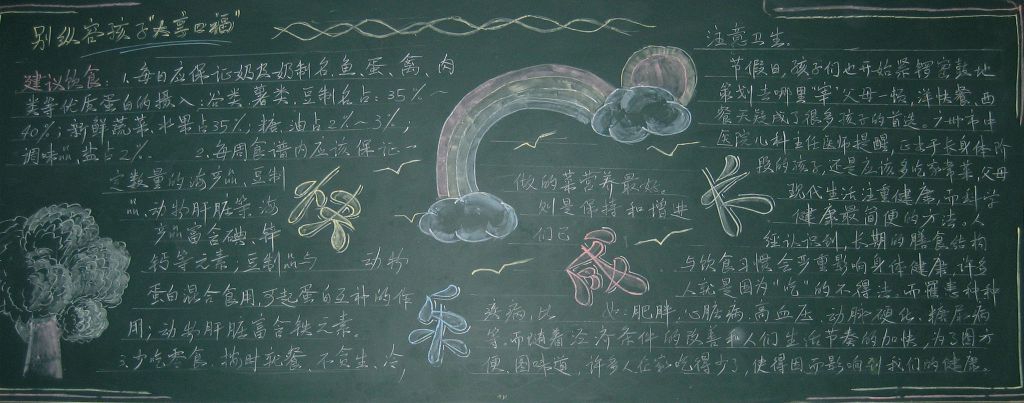 别纵容孩子“大享口福”
建议饮食：1、每日应保证奶及奶制品、鱼、蛋、禽、肉
类等优质蛋白的摄入；谷类、薯类、豆制品占：35%～
40%；新鲜蔬菜、水果占35%；糖、油占2%～3%；
调味品、盐占2%. 2、每周食谱内应该保证一
定数量的海产品、豆制
品、动物肝脏等海
产品富含碘、锌
钙等元素；豆制品与 动物
蛋白混合食用，可起蛋白互补的作
用；动物肝脏富含铁元素。
3、少吃零食、按时就餐、不食生、冷，
快
乐
成
长
注意卫生.
节假日，孩子们也开始紧锣密鼓地
策划去哪里“宰”父母一顿，洋快餐、西
餐天然成了很多孩子的首选。广州市中
医院儿科主任医师提醒，正处于长身体阶
段的孩子，还是应该多吃家常菜，父母
做的菜营养最好。 现代生活注重健康，而科学
则是保持和增进 健康最简便的方法。人
们已 经认识到，长期的膳食结构
与饮食习惯会严重影响身体健康，许多
人就是因为“吃”的不得法，而罹患种种
疾病，比 如：肥胖、心脏病、高血压、动脉硬化、糖尿病
等。而随着经济条件的改善和人们生活节奏的加快，为了图方
便、图味道，许多人在家吃得少了，使得因而影响到我们的健康。